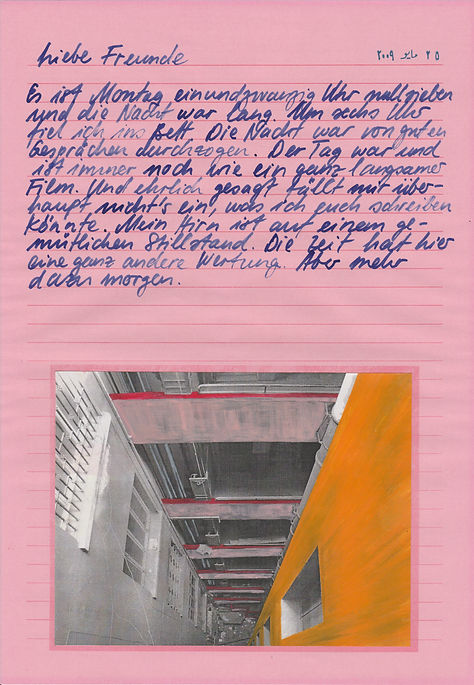 Liebe Freunde
٢٥ مايو ٢٠٠٩
Es ist Montag einundzwanzig Uhr nullsieben
und die Nacht war lang. Um sechs Uhr
fiel ich ins Bett. Die Nacht war von guten
Gesprächen durchzogen. Der Tag war und
ist immer noch wie ein ganz langsamer
Film. Und ehrlich gesagt fällt mir über-
haupt nicht's ein, was ich euch schreiben
könnte. Mein Hirn ist auf einem ge-
mütlichen Stillstand. Die Zeit hat hier
eine ganz andere Wertung. Aber mehr
dazu morgen.